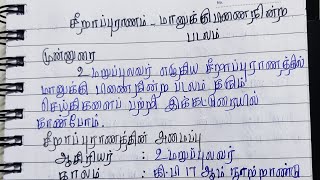 சீறாப்புராணம் - மானுக்கு பிணைநின்ற
படலம்
முன்னுரை
உமறுப்புலவர் எழுதிய சீறாப்புராணத்தில்
மானுக்கு பிணைநின்ற படலம் தரும்
செய்திகளைப் பற்றி இக்கட்டுரையில்
காண்போம்.
சீறாப்புராணத்தின் அமைப்பு
ஆசிரியர் : உமறுப்புலவர்
காலம் : கி.பி 17 ஆம் நூற்றாண்டு